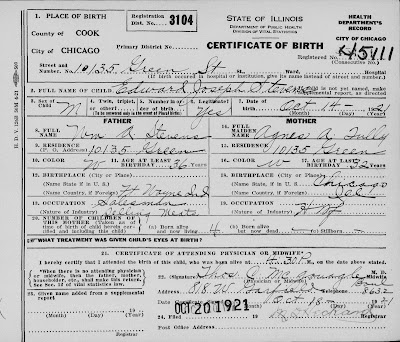 1. PLACE OF BIRTH
Registration Dist. No. 3104
STATE OF ILLINOIS
DEPARTMENT OF PUBLIC HEALTH
DIVISION OF VITAL STATISTICS
HEALTH DEPARTMENT'S RECORD
COUNTY OF COOK
CITY OF CHICAGO
CITY OF CHICAGO
Primary District No.
CERTIFICATE OF BIRTH
Registered No. 45111
(Consecutive No.)
Street and Number, No. 10135 Green St., Ward, Hospital
(If birth occurred in hospital or institution, give its name instead of street and number)
2. FULL NAME OF CHILD Edward Joseph
If child is not yet named, make supplemental report, as directed.
3. Sex of Child M
4. Twin, triplet, or other?
6. Legitimate? Yes
Oct 14 1921
(Month) (Day) (Year)
FATHER
MOTHER
8. FULL NAME Wm A
14. FULL MAIDEN NAME Agnes A
9. RESIDENCE (P. O. Address) 10135 Green
15. RESIDENCE 10135 Green
10. COLOR W 11. AGE AT LAST BIRTHDAY 36 Years
16. COLOR W 17. AGE AT LAST BIRTHDAY 32 Years
12. BIRTHPLACE (City or Place)
(Name State, if in U. S.)
(Name Country, if Foreign) Ft Wayne Ind
18. BIRTHPLACE (City or Place) Chicago
(Name State, if in U. S.)
(Name Country, if Foreign) Ill
13. OCCUPATION Salesman
(Nature of Industry)
19. OCCUPATION
(Nature of Industry) H Wf
20. NUMBER OF CHILDREN OF THIS MOTHER (Taken as of time of birth of child herein certified and including this child)
(a) Born alive and now living 4
(b) Born alive but now dead
(c) Stillborn
21. WHAT TREATMENT WAS GIVEN CHILD'S EYES AT BIRTH?
22. CERTIFICATE OF ATTENDING PHYSICIAN OR MIDWIFE*
I hereby certify that I attended the birth of this child, who was born alive at 4:30 P M., on the date above stated.
*When there is no attending physician or midwife, then the father, mother, householder, etc., shall make this return. See Sec. 12 of vital statistics law.
(Signature) Thos
M. D.
Midwife
(Physician or Midwife)
Address 818 W Garfield Telephone 8632
Given name added from a supplemental report
Date Oct 18 1921
(Month) (Day) (Year)
OCT 20 1921
24. Filed
Registrar
Post Office Address